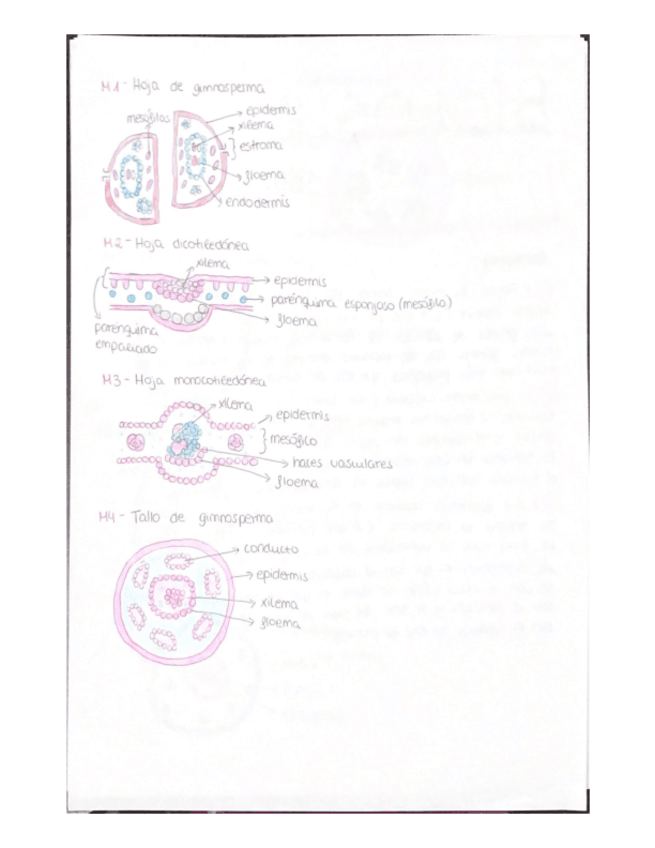 M1 - Hoja de gimnosperma
mesófilos
epidermis
xilema
estroma
floema
endodermis
M2 - Hoja dicotiledónea
xilema
epidermis
parénquima esponjoso (mesófilo)
floema
parénquima
empalizado
M3 - Hoja monocotiledónea
xilema
epidermis
mesófilo
haces vasculares
floema
M4 - Tallo de gimnosperma
conducto
epidermis
xilema
floema